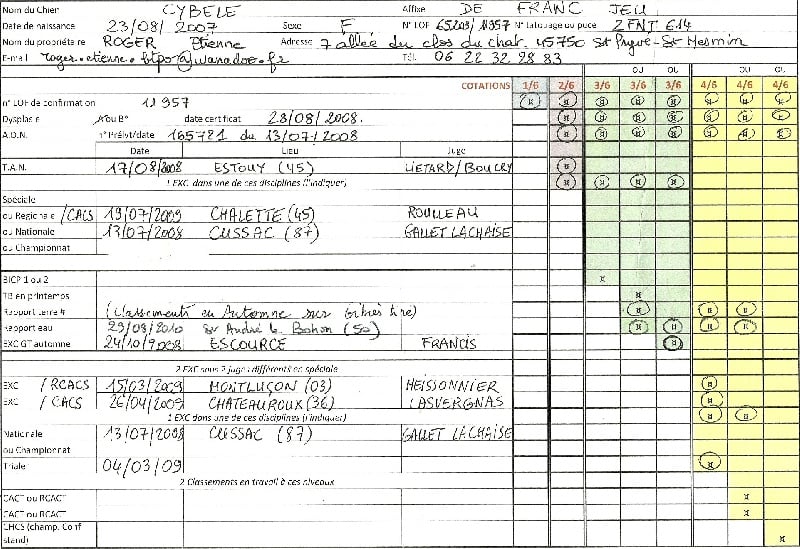 Nom du Chien CYBELE Affixe DE FRANC JEU
Date de naissance 23/08/2007 Sexe F N° LOF N° Tatouage ou puce 2FNT 614
Nom du propriétaire ROGER Etienne Adresse 7 allée du clos du chat. 45750 St Pryvé-St Mesmin
E-mail Tél. 06 22 32 28 83
OU OU OU
COTATIONS 1/6 2/6 3/6 3/6 3/6 4/6 4/6 4/6
n° LOF de confirmation 11957
Dysplasie A ou B* date certificat 28/08/2008.
A.D.N. n° Prélvt/date 165721 du 13/07/2008
Date Lieu Juge
T.A.N. 17/08/2008 ESTOUY (45) LIETARD/BOUCRY
1 EXC dans une de ces disciplines (l'indiquer)
Spéciale
ou Régionale /CACS 19/07/2009 CHALETTE (45) ROULLEAU
ou Nationale 13/07/2008 CUSSAC (87) GALLET LACHAISE
ou Championnat
BICP 1 ou 2
TB en printemps
Rapport terre # (Classements en Automne sur
Rapport eau 29/08/2010 St André le Bohon (50)
EXC GT automne 24/10/2008 ESCOURCE FRANCIS
2 EXC sous 2 juges différents en spéciale
EXC / RCACS 15/03/2009 MONTLUÇON (03) HEISSONNIER
EXC / CACS 26/04/2009 CHATEAUROUX (36) LASVERGNAS
1 EXC dans une de ces disciplines (l'indiquer)
Nationale 13/07/2008 CUSSAC (87) GALLET LACHAISE
ou Championnat
Triale 04/03/09
2 Classements en travail à ces niveaux
CACT ou RCACT
CACT ou RCACT
CHCS (champ. Conf
stand)